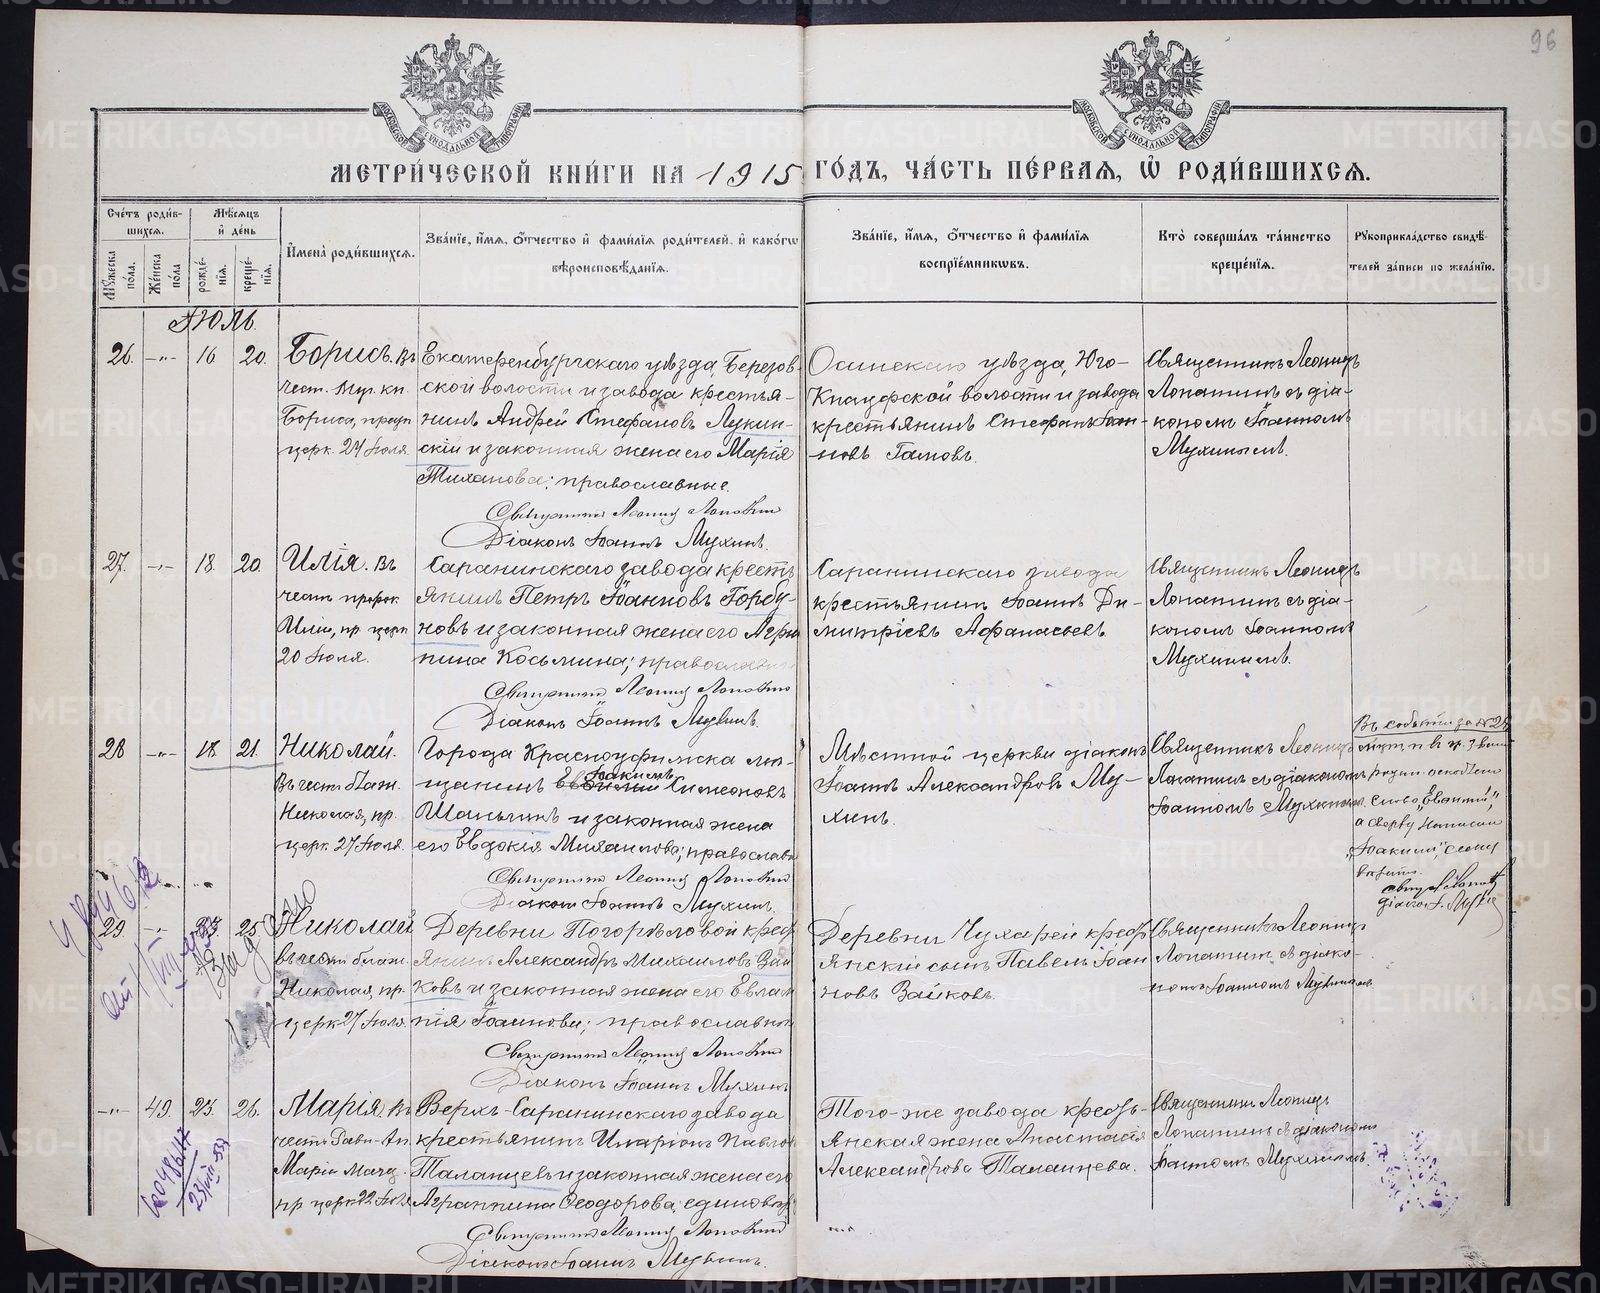 96
МОСКОВСКОЙ СѴНОДАЛЬНОЙ ТИПОГРАФІИ
МОСКОВСКОЙ СѴНОДАЛЬНОЙ ТИПОГРАФІИ
МЕТРИ́ЧЕСКОЙ КНИ́ГИ НА 1915 ГО́ДЪ, ЧА́СТЬ ПЕ́РВАѦ, Ѡ҆ РОДИ́ВШИХСѦ.
Сче́тъ роди́в-
шихсѧ.
Мѣ́сѧцъ
и҆ де́нь
Му́жеска по́ла.
Же́нска по́ла
рожде́-нїѧ.
креще́-нїѧ.
И҆мена̀ роди́вшихсѧ.
Зва́нїе, и҆́мѧ, ѻ҆́тчество и҆ фами́лїѧ роди́телей, и҆ како́гѡ
вѣроисповѣ́данїѧ.
Зва́нїе, и҆́мѧ, ѻ҆́тчество и҆ фами́лїѧ
воспрїе́мниковъ.
Кто̀ соверша́лъ та́инство
креще́нїѧ.
Рукоприкла́дство свидѣ́-
телей за́писи по жела́нїю.
Іюль.
26. —„— 16 20.
Борисъ. Въ
чест. Муч. кн.
Бориса, празн
церк. 24 Іюля.
Екатеренбургскаго уѣзда, Березов-
ской волости и завода крестья-
нинъ Андрей Стефановъ Лукин-
скій и законная жена его Марія
Тиханова; православные.
Священникъ Леонидъ Лопатинъ
Діаконъ Іоаннъ Мухинъ.
Осинскаго уѣзда, Юго-
Кнауфской волости и завода
крестьянинъ Стефанъ Іоан-
новъ Гамовъ.
Священникъ Леонидъ
Лопатинъ съ діа-
кономъ Іоанномъ
Мухинымъ.
27. —„— 18 20.
Илія. Въ
честь прор.
Иліи, пр. церк
20 Іюля.
Саранинскаго завода кресть
янинъ Петръ Іоанновъ Горбу-
новъ и законная жена его Агри
пина Косьмина; православные
Священникъ Леонидъ Лопатинъ
Діаконъ Іоаннъ Мухинъ.
Саранинскаго завода
крестьянинъ Іоаннъ Ди-
митріевъ Афанасьевъ.
Священникъ Леонидъ
Лопатинъ съ діа-
кономъ Іоанномъ
Мухинымъ.
28 —„— 18 21.
Николай.
Въ честь блаж.
Николая, пр.
церк. 27 Іюля.
Города Красноуфимска мѣ-
щанинъ Іоакимъ Симеоновъ
Шаньгинъ и законная жена
его Евдокія Михаилова; православн
Священникъ Леонидъ Лопатинъ
Діаконъ Іоаннъ Мухинъ.
Мѣстной церкви діаконъ
Іоаннъ Александровъ Му-
хинъ.
Священникъ Леонидъ
Лопатинъ съ діакономъ
Іоанномъ Мухинымъ.
Въ событіи за №28
слово
а сверху написан
„Іоакимъ"
29. —„— 25.
Николай
въ честь блаж.
Николая, пр.
церк 27 Іюля.
Деревни Погорѣловой крест
янинъ Александръ Михаиловъ Зай
ковъ и законная жена его Евлам
пія Іоаннова; православн
Священникъ Леонидъ Лопатинъ
Діаконъ Іоаннъ Мухинъ
Деревни Чухарей крест
янскій сынъ Павелъ Іоан
новъ Зайковъ.
Священникъ Леонидъ
Лопатинъ съ діако-
номъ Іоанномъ Мухинымъ
—„— 49. 25. 26.
Марія. Въ
честь Равн-Ап.
Маріи Магд.
пр церк 22 Іюля
Верхъ-Саранинскаго завода
крестьянинъ Иларіонъ Павлов
Таланцевъ и законная жена его
Агрипина Ѳеодорова; единовѣр
Священникъ Леонидъ Лопатинъ
Діаконъ Іоаннъ Мухинъ.
Того-же завода крест-
янская жена Анастасія
Александрова Таланцева.
Священникъ Леонидъ
Лопатинъ съ діакономъ
Іоанномъ Мухинымъ.
METRIKI.GASO-URAL.RU